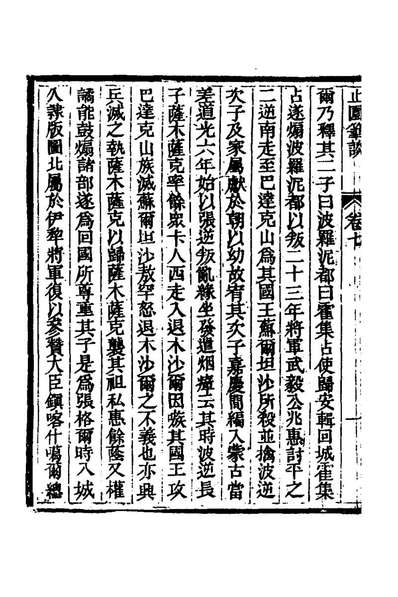 止園筆談 卷七
爾乃釋其二子曰波羅泥都曰霍集占使歸安輯回城崔集
占遂煽波羅泥都以叛二十三年將軍武毅公兆惠討平之
二逆南走至巴達克山爲其國王蘇爾坦沙所殺並擒波逆
次子及家屬獻於朝以幼故宥其次子嘉慶間編入蒙古當
差道光六年始以張逆叛亂緣坐發遣烟瘴云其時波逆長
子薩木薩克率餘眾卡人西走入退木沙爾因族其國王攻
巴達克山族滅蘇爾坦沙敖罕怒退木沙爾之不義也亦興
兵滅之執薩木薩克以歸薩木薩克襲其祖私惠餘蔭又權
譎能鼓煽諸部遂爲回國所尊重其子是爲張格爾時入城
久隸版圖北屬於伊犁將軍復以參贊大臣鎭喀什噶爾總